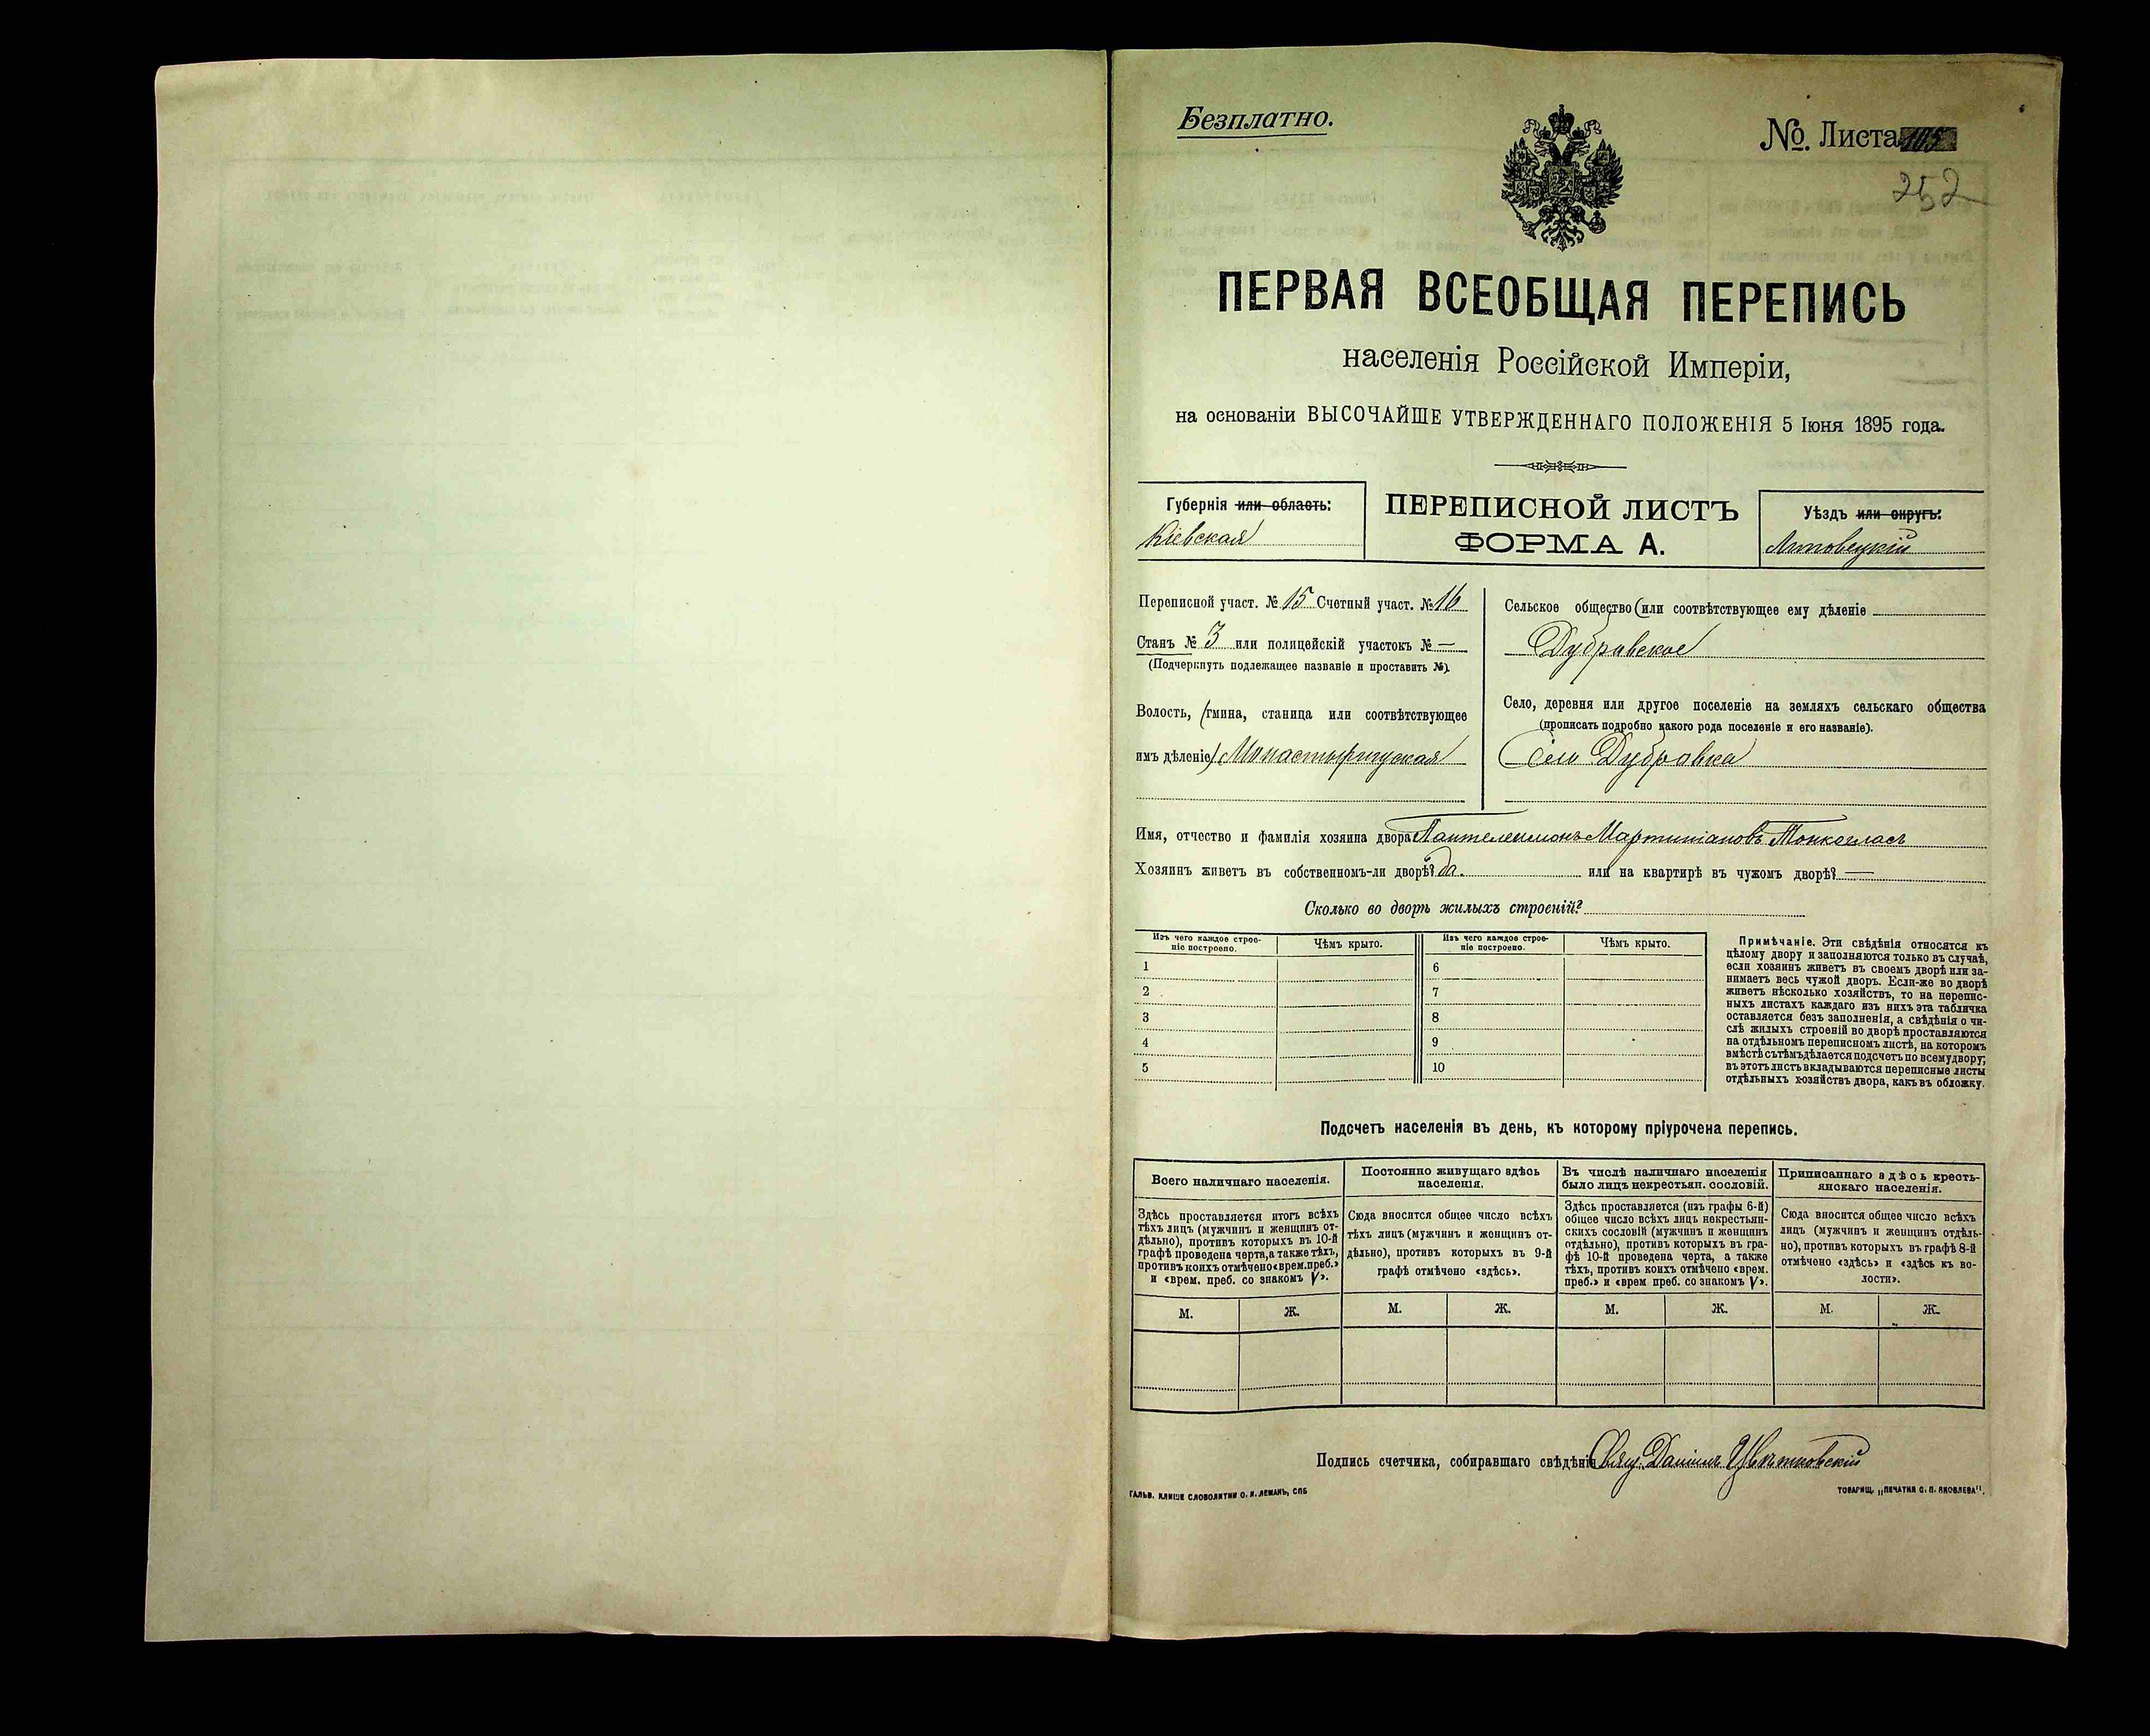 Безплатно.
№. Листа 105
252
ПЕРВАЯ ВСЕОБЩАЯ ПЕРЕПИСЬ
населенія Россійской Имперіи,
на основаніи ВЫСОЧАЙШЕ УТВЕРЖДЕННАГО ПОЛОЖЕНІЯ 5 Іюня 1895 года.
Губернія или область:
Кіевская
ПЕРЕПИСНОЙ ЛИСТЪ
ФОРМА А.
Уѣздъ или округъ:
Липовецкій
Переписной участ. № 15 Счетный участ. № 16
Станъ № 3 или полицейскій участокъ № —
(Подчеркнуть подлежащее названіе и проставить №).
Волость, (гмина, станица или соотвѣтствующее
имъ дѣленіе) Монастырищская
Сельское общество (или соотвѣтствующее ему дѣленіе
Дубровское
Село, деревня или другое поселеніе на земляхъ сельскаго общества
(прописать подробно какого рода поселеніе и его названіе).
Село Дубровка
Имя, отчество и фамилія хозяина двора Пантелеимонъ Мартиніановъ Тонкогласъ
Хозяинъ живетъ въ собственномъ-ли дворѣ? да. или на квартирѣ въ чужомъ дворѣ? —
Сколько во дворѣ жилыхъ строеній?
Изъ чего каждое строе-
ніе построено.
Чѣмъ крыто.
Изъ чего каждое строе-
ніе построено.
Чѣмъ крыто.
1
6
2
7
3
8
4
9
5
10
Примѣчаніе. Эти свѣдѣнія относятся къ
цѣлому двору и заполняются только въ случаѣ,
если хозяинъ живетъ въ своемъ дворѣ или за-
нимаетъ весь чужой дворъ. Если-же во дворѣ
живетъ нѣсколько хозяйствъ, то на перепис-
ныхъ листахъ каждаго изъ нихъ эта табличка
оставляется безъ заполненія, а свѣдѣнія о чи-
слѣ жилыхъ строеній во дворѣ проставляются
на отдѣльномъ переписномъ листѣ, на которомъ
вмѣстѣ съ тѣмъ дѣлается подсчетъ по всему двору;
въ этотъ листъ вкладываются переписные листы
отдѣльныхъ хозяйствъ двора, какъ въ обложку.
Подсчетъ населенія въ день, къ которому пріурочена перепись.
Всего наличнаго населенія.
Здѣсь проставляется итогъ всѣхъ
тѣхъ лицъ (мужчинъ и женщинъ от-
дѣльно), противъ которыхъ въ 10-й
графѣ проведена черта, а также тѣхъ,
противъ коихъ отмѣчено «врем. преб.»
и «врем. преб. со знакомъ V».
М.
Ж.
Постоянно живущаго здѣсь
населенія.
Сюда вносится общее число всѣхъ
тѣхъ лицъ (мужчинъ и женщинъ от-
дѣльно), противъ которыхъ въ 9-й
графѣ отмѣчено «здѣсь».
М.
Ж.
Въ числѣ наличнаго населенія
было лицъ некрестьян. сословій.
Здѣсь проставляется (изъ графы 6-й)
общее число всѣхъ лицъ некрестьян-
скихъ сословій (мужчинъ и женщинъ
отдѣльно), противъ которыхъ въ гра-
фѣ 10-й проведена черта, а также
тѣхъ, противъ коихъ отмѣчено «врем.
преб.» и «врем преб. со знакомъ V».
М.
Ж.
Приписаннаго здѣсь кресть-
янскаго населенія.
Сюда вносится общее число всѣхъ
лицъ (мужчинъ и женщинъ отдѣль-
но), противъ которыхъ въ графѣ 8-й
отмѣчено «здѣсь» и «здѣсь къ во-
лости».
М.
Ж.
Подпись счетчика, собиравшаго свѣдѣнія Свящ. Даніилъ Цвѣтковскій
ГАЛЬВ. КЛИШЕ СЛОВОЛИТНИ О. И. ЛЕМАНЪ, СПБ
ТОВАРИЩ. „ПЕЧАТНЯ С. П. ЯКОВЛЕВА".